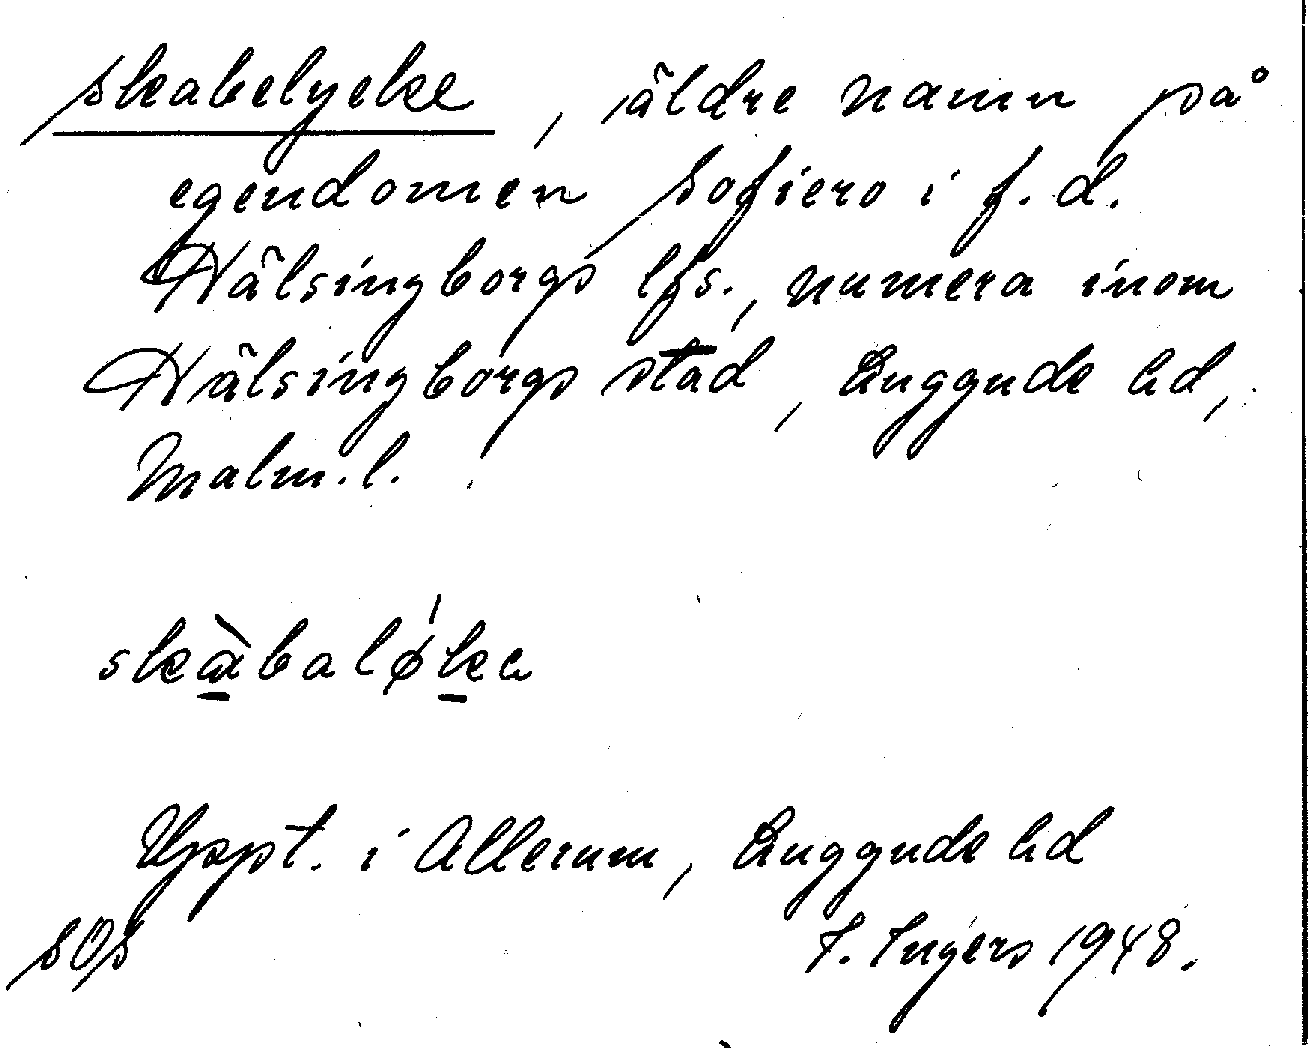 Skabelycke, äldre namn på
egendomen Sofiero i f.d.
Hälsingborgs lfs., numera inom
Hälsingborgs stad, Luggude hd,
Malm.l.
skàbaløke
Uppt. i Allerum, Luggude hd
SOS I. Ingers 1948.